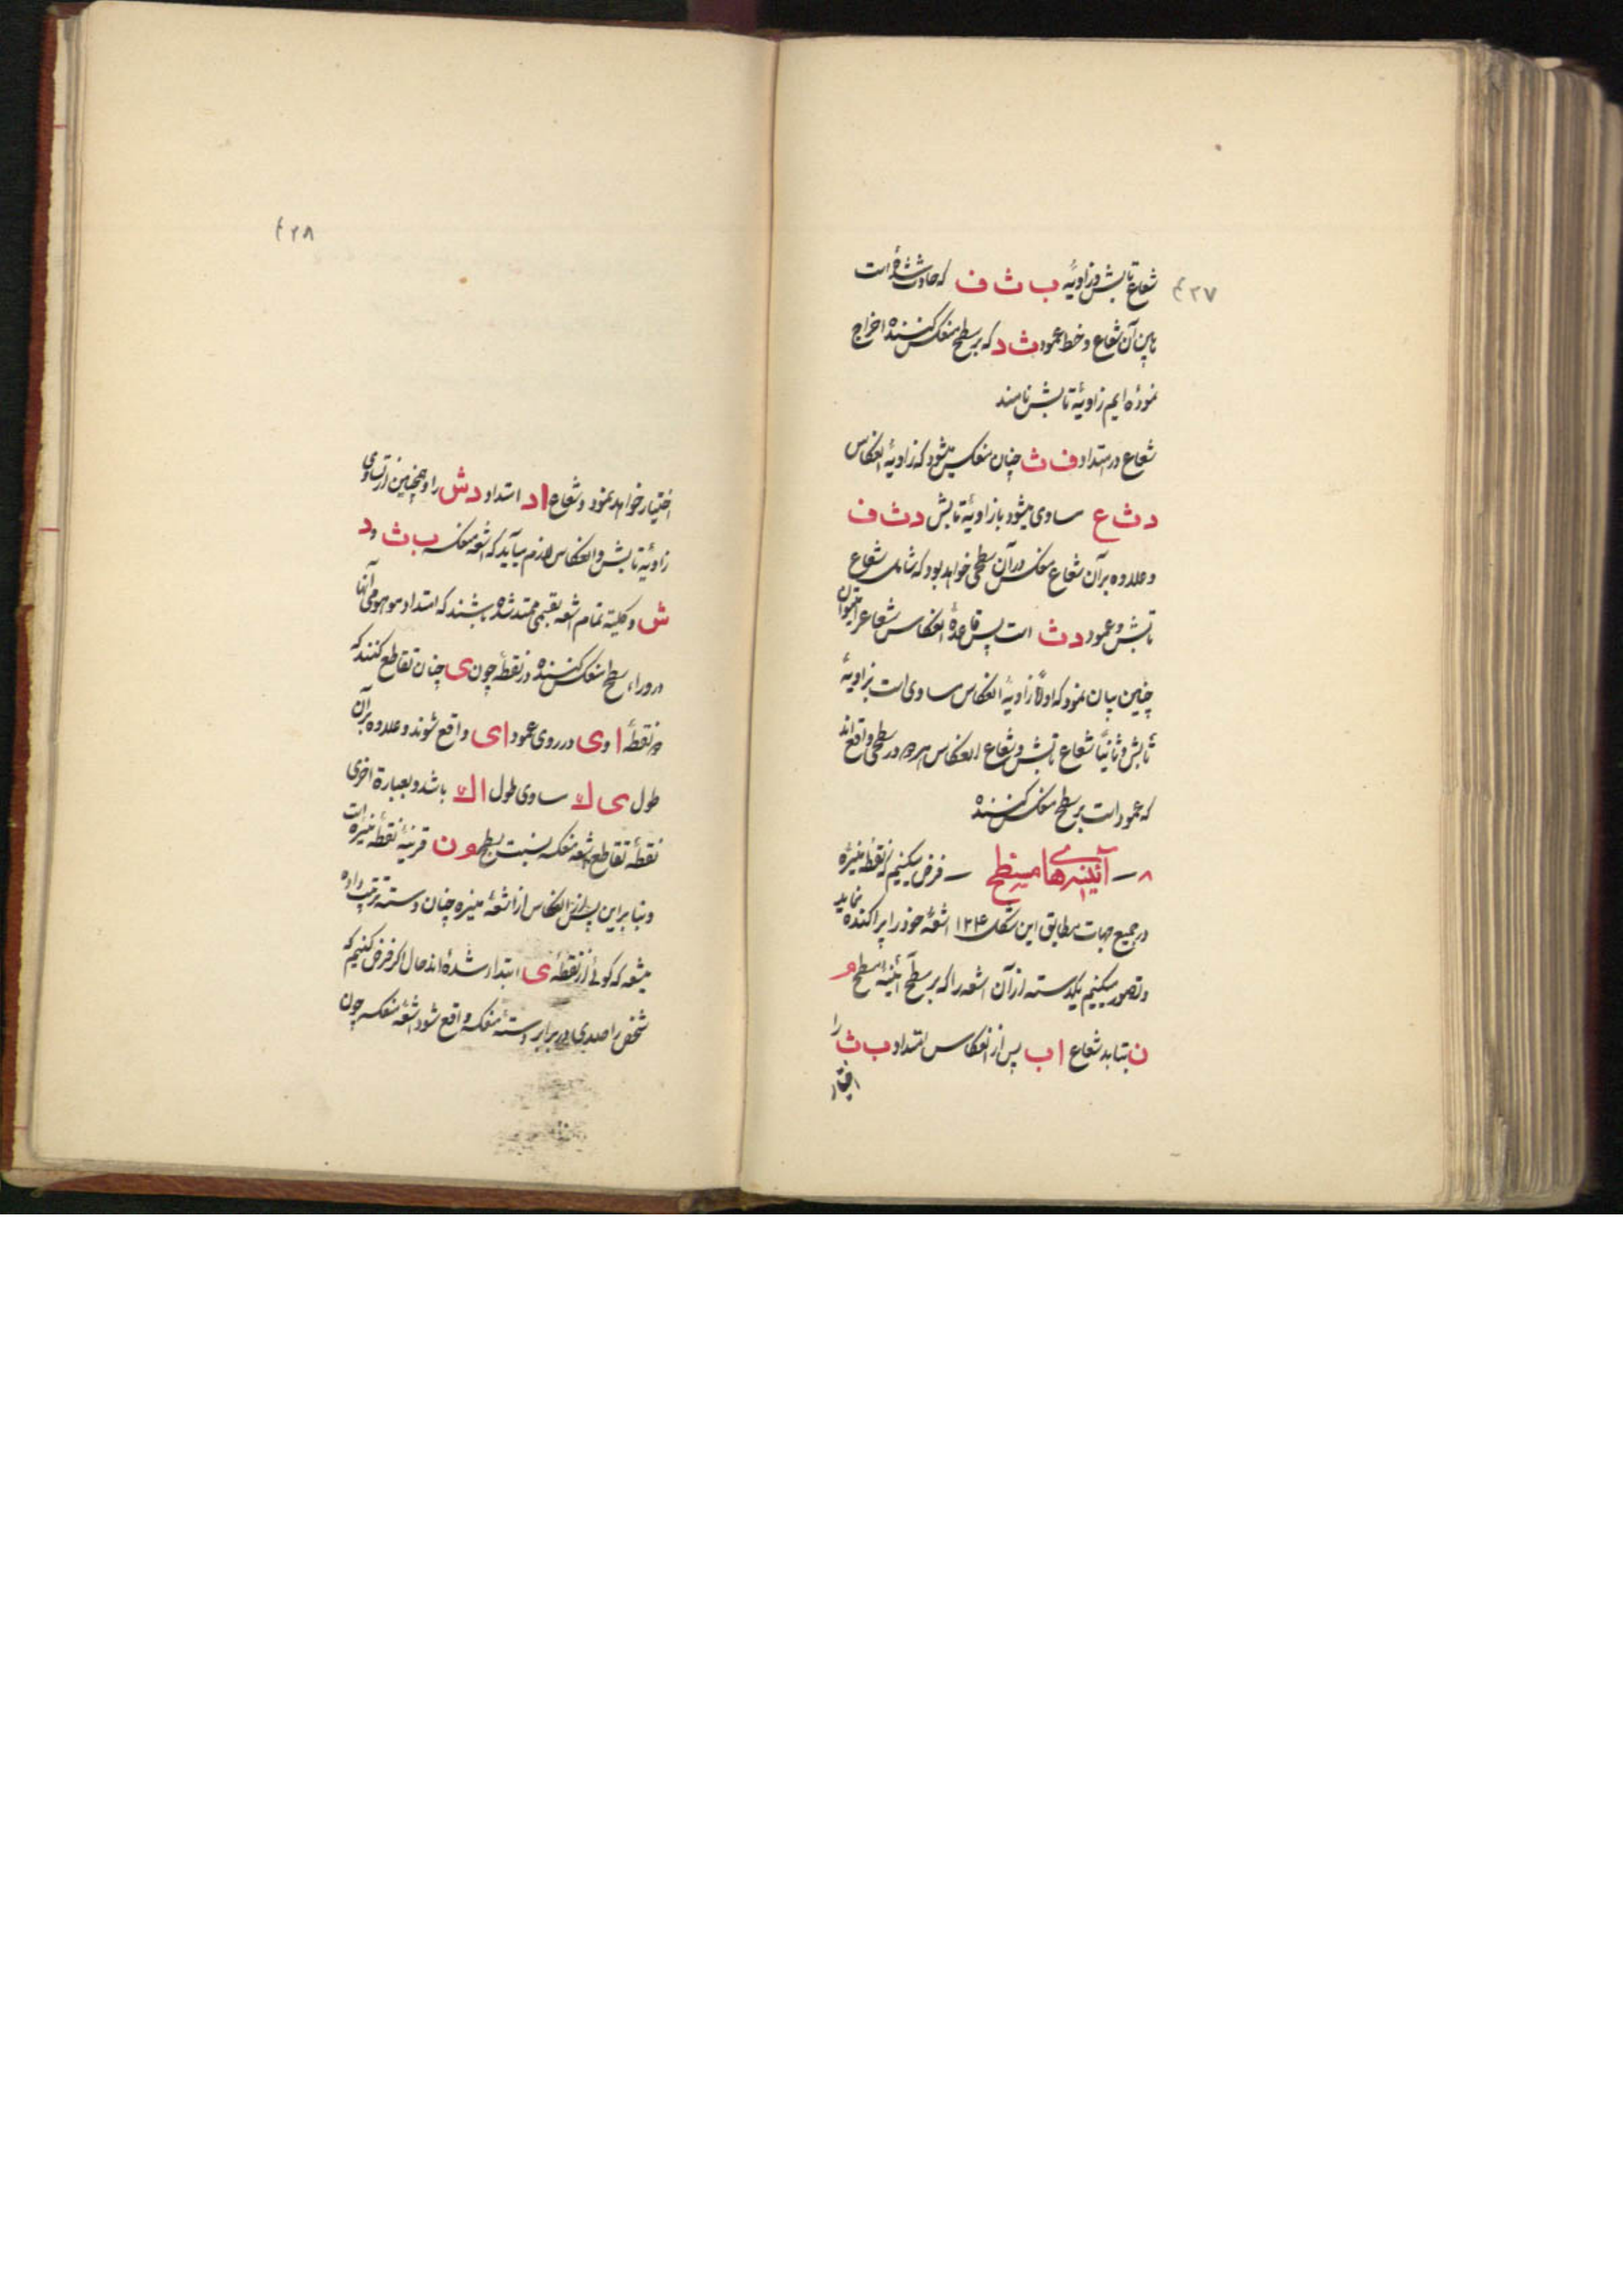 ۴۲۷
شعاع تابش و زاویهٔ ب ث ف که حادث شده است
مابین آن شعاع و خط عمود ث د که بر سطح منعکس کننده اخراج
نموده ایم زاویهٔ تابش نامند
شعاع در امتداد ف ث چنان منعکس میشود که زاویهٔ انعکاس
د ث ع مساوی میشود با زاویهٔ تابش د ث ف
و علاوه بر آن شعاع منعکس در آن سطحی خواهد بود که شامل شعاع
تابش و عمود د ث است پس قاعدهٔ انعکاس شعاع را میتوان
چنین بیان نمود که اولاً زاویهٔ انعکاس مساوی است بزاویهٔ
تابش و ثانیاً شعاع تابش و شعاع انعکاس هر دو در سطحی واقع اند
که عمود است بر سطح منعکس کننده
۸ – آئینه های مسطح – فرض میکنیم که نقطه منیرهٔ
در جمیع جهات مطابق این شکل ۱۲۴ اشعهٔ خود را پراکنده نماید
و تصور میکنیم یکدسته از آن اشعه را که بر سطح آئینهٔ مسطح و
ن بتابد شعاع ا ب پس از انعکاس امتداد ب ث را
اختیار
۴۲۸
اختیار خواهد نمود و شعاع ا د امتداد د ش را و همچنین از تساوی
زاویهٔ تابش و انعکاس لازم میآید که اشعه منعکسه ب ث و د
ش و کلیة تمام اشعه بقسمی ممتد شده باشند که امتداد موهومی آنها
در وراء سطح منعکس کننده در نقطهٔ چون ی چنان تقاطع کنند که
دو نقطهٔ ا و ی در روی عمود ا ی واقع شوند و علاوه بر آن
طول ی ك مساوی طول ا ك باشد و بعبارة اخری
نقطهٔ تقاطع اشعه منعکسه نسبت بسطح و ن قرینهٔ نقطه منیره است
و بنا بر این پس از انعکاس از اشعهٔ منیره چنان دسته ترتیب داده
میشود که گوئی از نقطهٔ ی ابتدا شده اند حال اگر فرض کنیم که
شخص راصدی در برابر دستهٔ منعکسه واقع شود اشعهٔ منعکسه چون